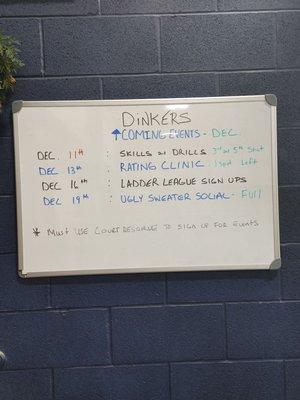 DINKERS
↑COMING EVENTS - DEC.
DEC. 11th : SKILLS w/ DRILLS
DEC 13th : RATING CLINIC 1 Spot Left
DEC 16th : LADDER LEAGUE SIGN UPS
DEC 19th : UGLY SWEATER SOCIAL - Full
* Must USE COURT RESERVE TO SIGN UP FOR EVENTS